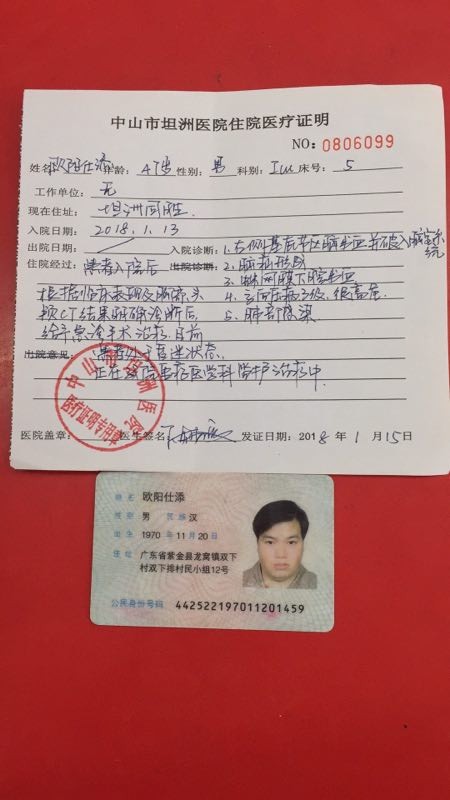 中山市坦洲医院住院医疗证明
NO: 0806099
姓名 欧阳仕添 年龄: 47岁 性别: 男 科别: Icu 床号: 5
工作单位: 无
现在住址: 坦洲同胜
入院日期: 2018.1.13
出院日期: 入院诊断: 1.右侧基底节区脑出血并破入脑室系统
住院经过: 患者入院后 出院诊断: 2.脑疝形成
3.蛛网膜下腔出血
根据临床表现及脑部头 4.高血压病3级 很高危
颅CT结果明确诊断后 5.肺部感染
给予急诊手术治疗,目前
出院意见: 患者处于昏迷状态
正在我院重症医学科监护治疗中.
中山市坦洲医院
医疗证明专用章
医院盖章: 医生签名: 发证日期: 2018 年 1 月 15日
姓名 欧阳仕添
性别 男 民族 汉
出生 1970 年 11 月 20 日
住址 广东省紫金县龙窝镇双下
村双下排村民小组12号
公民身份号码 442522197011201459